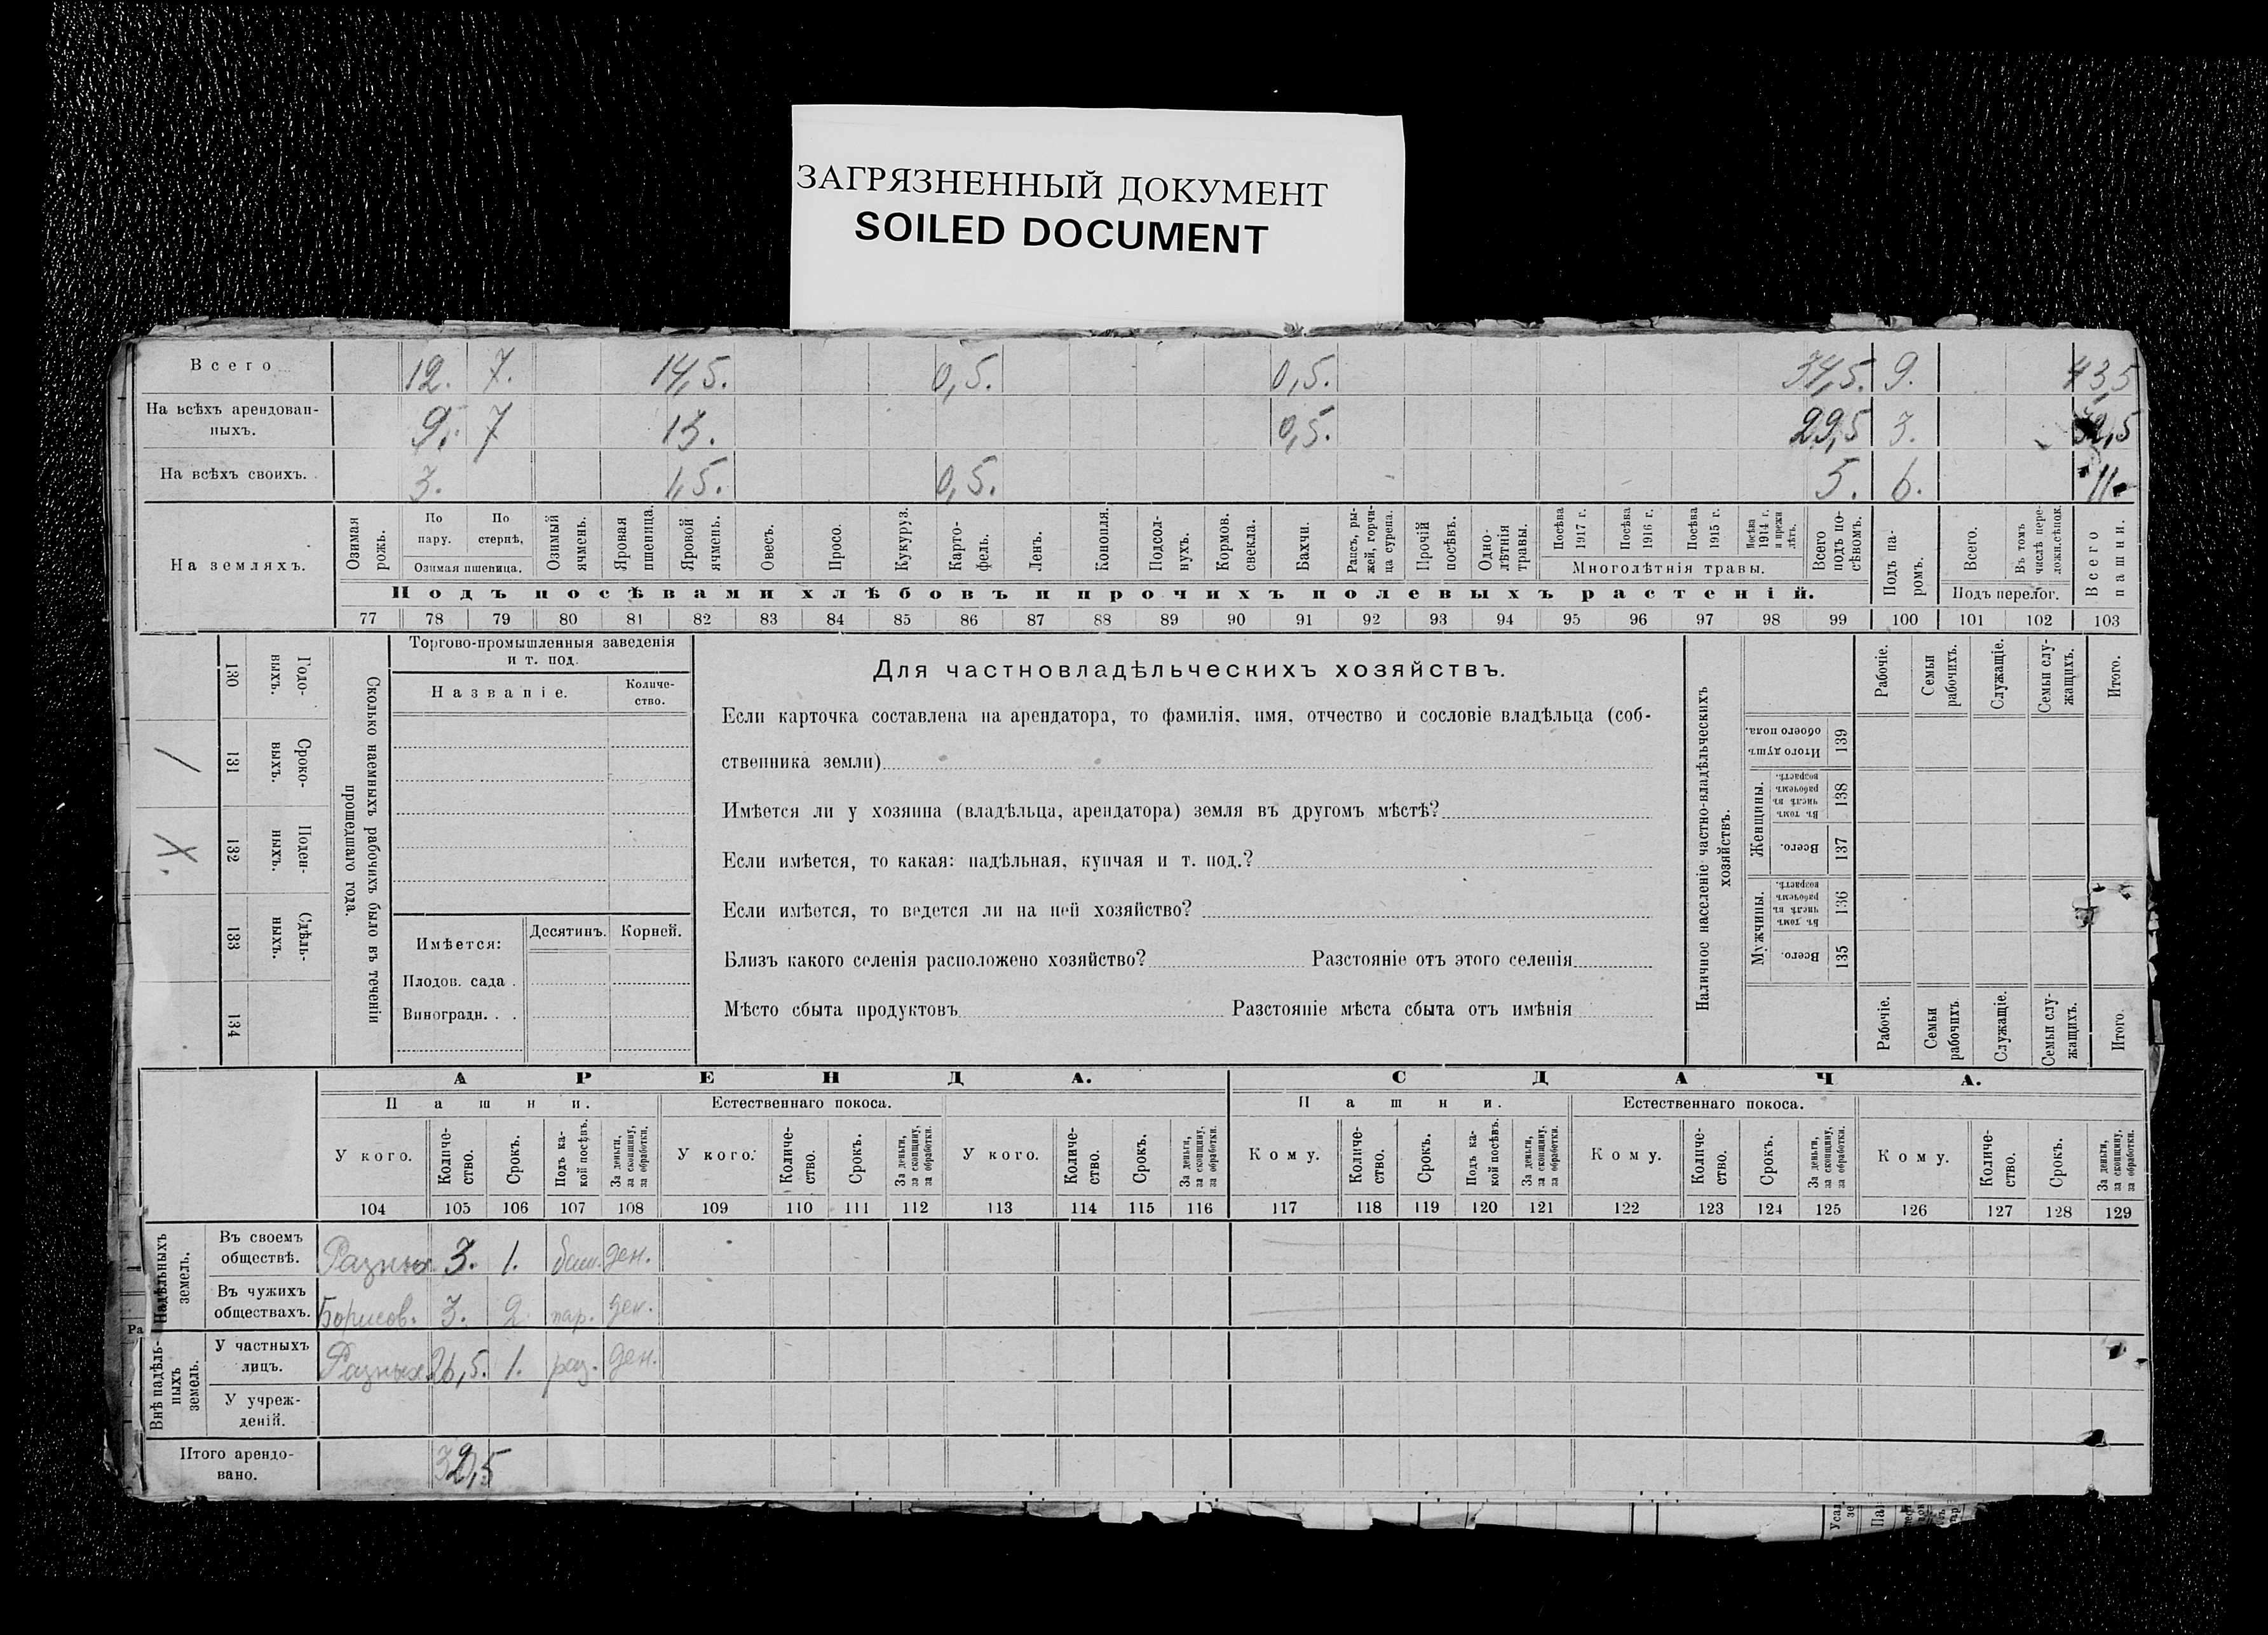 ЗАГРЯЗНЕННЫЙ ДОКУМЕНТ
SOILED DOCUMENT
Всего 12. 7. 14,5. 0,5. 0,5. 34,5. 9. 43,5
На всѣхъ арендован-
ныхъ. 9. 7 13. 0,5. 29,5 3. 32,5
На всѣхъ своихъ. 3. 1,5. 0,5. 5. 6. 11.
На земляхъ.
Озимая рожь.
По пару.
По стернѣ,
Озимая пшеница.
Озимый ячмень.
Яровая пшеница.
Яровой ячмень.
Овесъ.
Просо.
Кукуруз.
Карто-
фель.
Ленъ.
Конопля.
Подсол-
нухъ.
Кормов. свекла.
Бахчи.
Рапсъ, ры-
жей, горчи-
ца сурепа.
Прочій посѣвъ.
Одно-
лѣтнія травы.
Посѣва 1917 г.
Посѣва 1916 г.
Посѣва 1915 г.
Посѣва 1914 г. и прежн лѣтъ.
Многолѣтнія травы.
Всего подъ по-
сѣвомъ.
Подъ па-
ромъ.
Всего.
Въ томъ числѣ пере-
ложн.сѣнок.
Подъ перелог.
Всего пашни.
Подъ посѣвами хлѣбовъ и прочихъ полевыхъ растеній.
77 78 79 80 81 82 83 84 85 86 87 88 89 90 91 92 93 94 95 96 97 98 99 100 101 102 103
130 Годо-
выхъ.
/ 131 Сроко-
выхъ.
X 132 Поден-
ныхъ.
133 Сдѣль-
ныхъ.
134
Сколько наемныхъ рабочихъ было въ теченіи
прошедшаго года.
Торгово-промышленныя заведенія
и т. под.
Названіе.
Количе-
ство.
Имѣется: Десятинъ. Корней.
Плодов. сада .
Виноградн. . .
Для частновладѣльческихъ хозяйствъ.
Если карточка составлена на арендатора, то фамилія, имя, отчество и сословіе владѣльца (соб-
ственника земли)
Имѣется ли у хозяина (владѣльца, арендатора) земля въ другомъ мѣстѣ?
Если имѣется, то какая: надѣльная, купчая и т. под.?
Если имѣется, то ведется ли на ней хозяйство?
Близъ какого селенія расположено хозяйство? Разстояніе отъ этого селенія
Мѣсто сбыта продуктовъ Разстояніе мѣста сбыта отъ имѣнія
Наличное населеніе частно-владѣльческихъ
хозяйствъ.
Рабочіе.
Семьи рабочихъ.
Служащіе.
Семьи слу-
жащихъ.
Итого.
Итого душъ обоего пола. 139
Женщины.
Въ томъ числѣ въ рабочемъ возрастѣ. 138
Всего. 137
Мужчины.
Въ томъ числѣ въ рабочемъ возрастѣ. 136
Всего. 135
Рабочіе.
Семьи рабочихъ.
Служащіе.
Семьи слу-
жащихъ.
Итого.
АРЕНДА. СДАЧА.
Пашни. Естественнаго покоса. Пашни. Естественнаго покоса.
У кого.
Количе-
ство.
Срокъ.
Подъ ка-
кой посѣвъ.
За деньги,
за скопщину,
за обработки.
У кого.
Количе-
ство.
Срокъ.
За деньги,
за скопщину,
за обработки.
У кого.
Количе-
ство.
Срокъ.
За деньги,
за скопщину,
за обработки.
Кому.
Количе-
ство.
Срокъ.
Подъ ка-
кой посѣвъ.
За деньги,
за скопщину,
за обработки.
Кому.
Количе-
ство.
Срокъ.
За деньги,
за скопщину,
за обработки.
Кому.
Количе-
ство.
Срокъ.
За деньги,
за скопщину,
за обработки.
104 105 106 107 108 109 110 111 112 113 114 115 116 117 118 119 120 121 122 123 124 125 126 127 128 129
Надѣльныхъ
земель.
Въ своемъ
обществѣ. Разных 3. 1. ден.
Въ чужихъ
обществахъ. Борисов. 3. 2 пар. ден.
Ра
Внѣ надѣль-
ныхъ
земель.
У частныхъ
лицъ. Разных 26,5. 1. раз. ден.
У учреж-
деній.
Итого арендо-
вано. 32,5